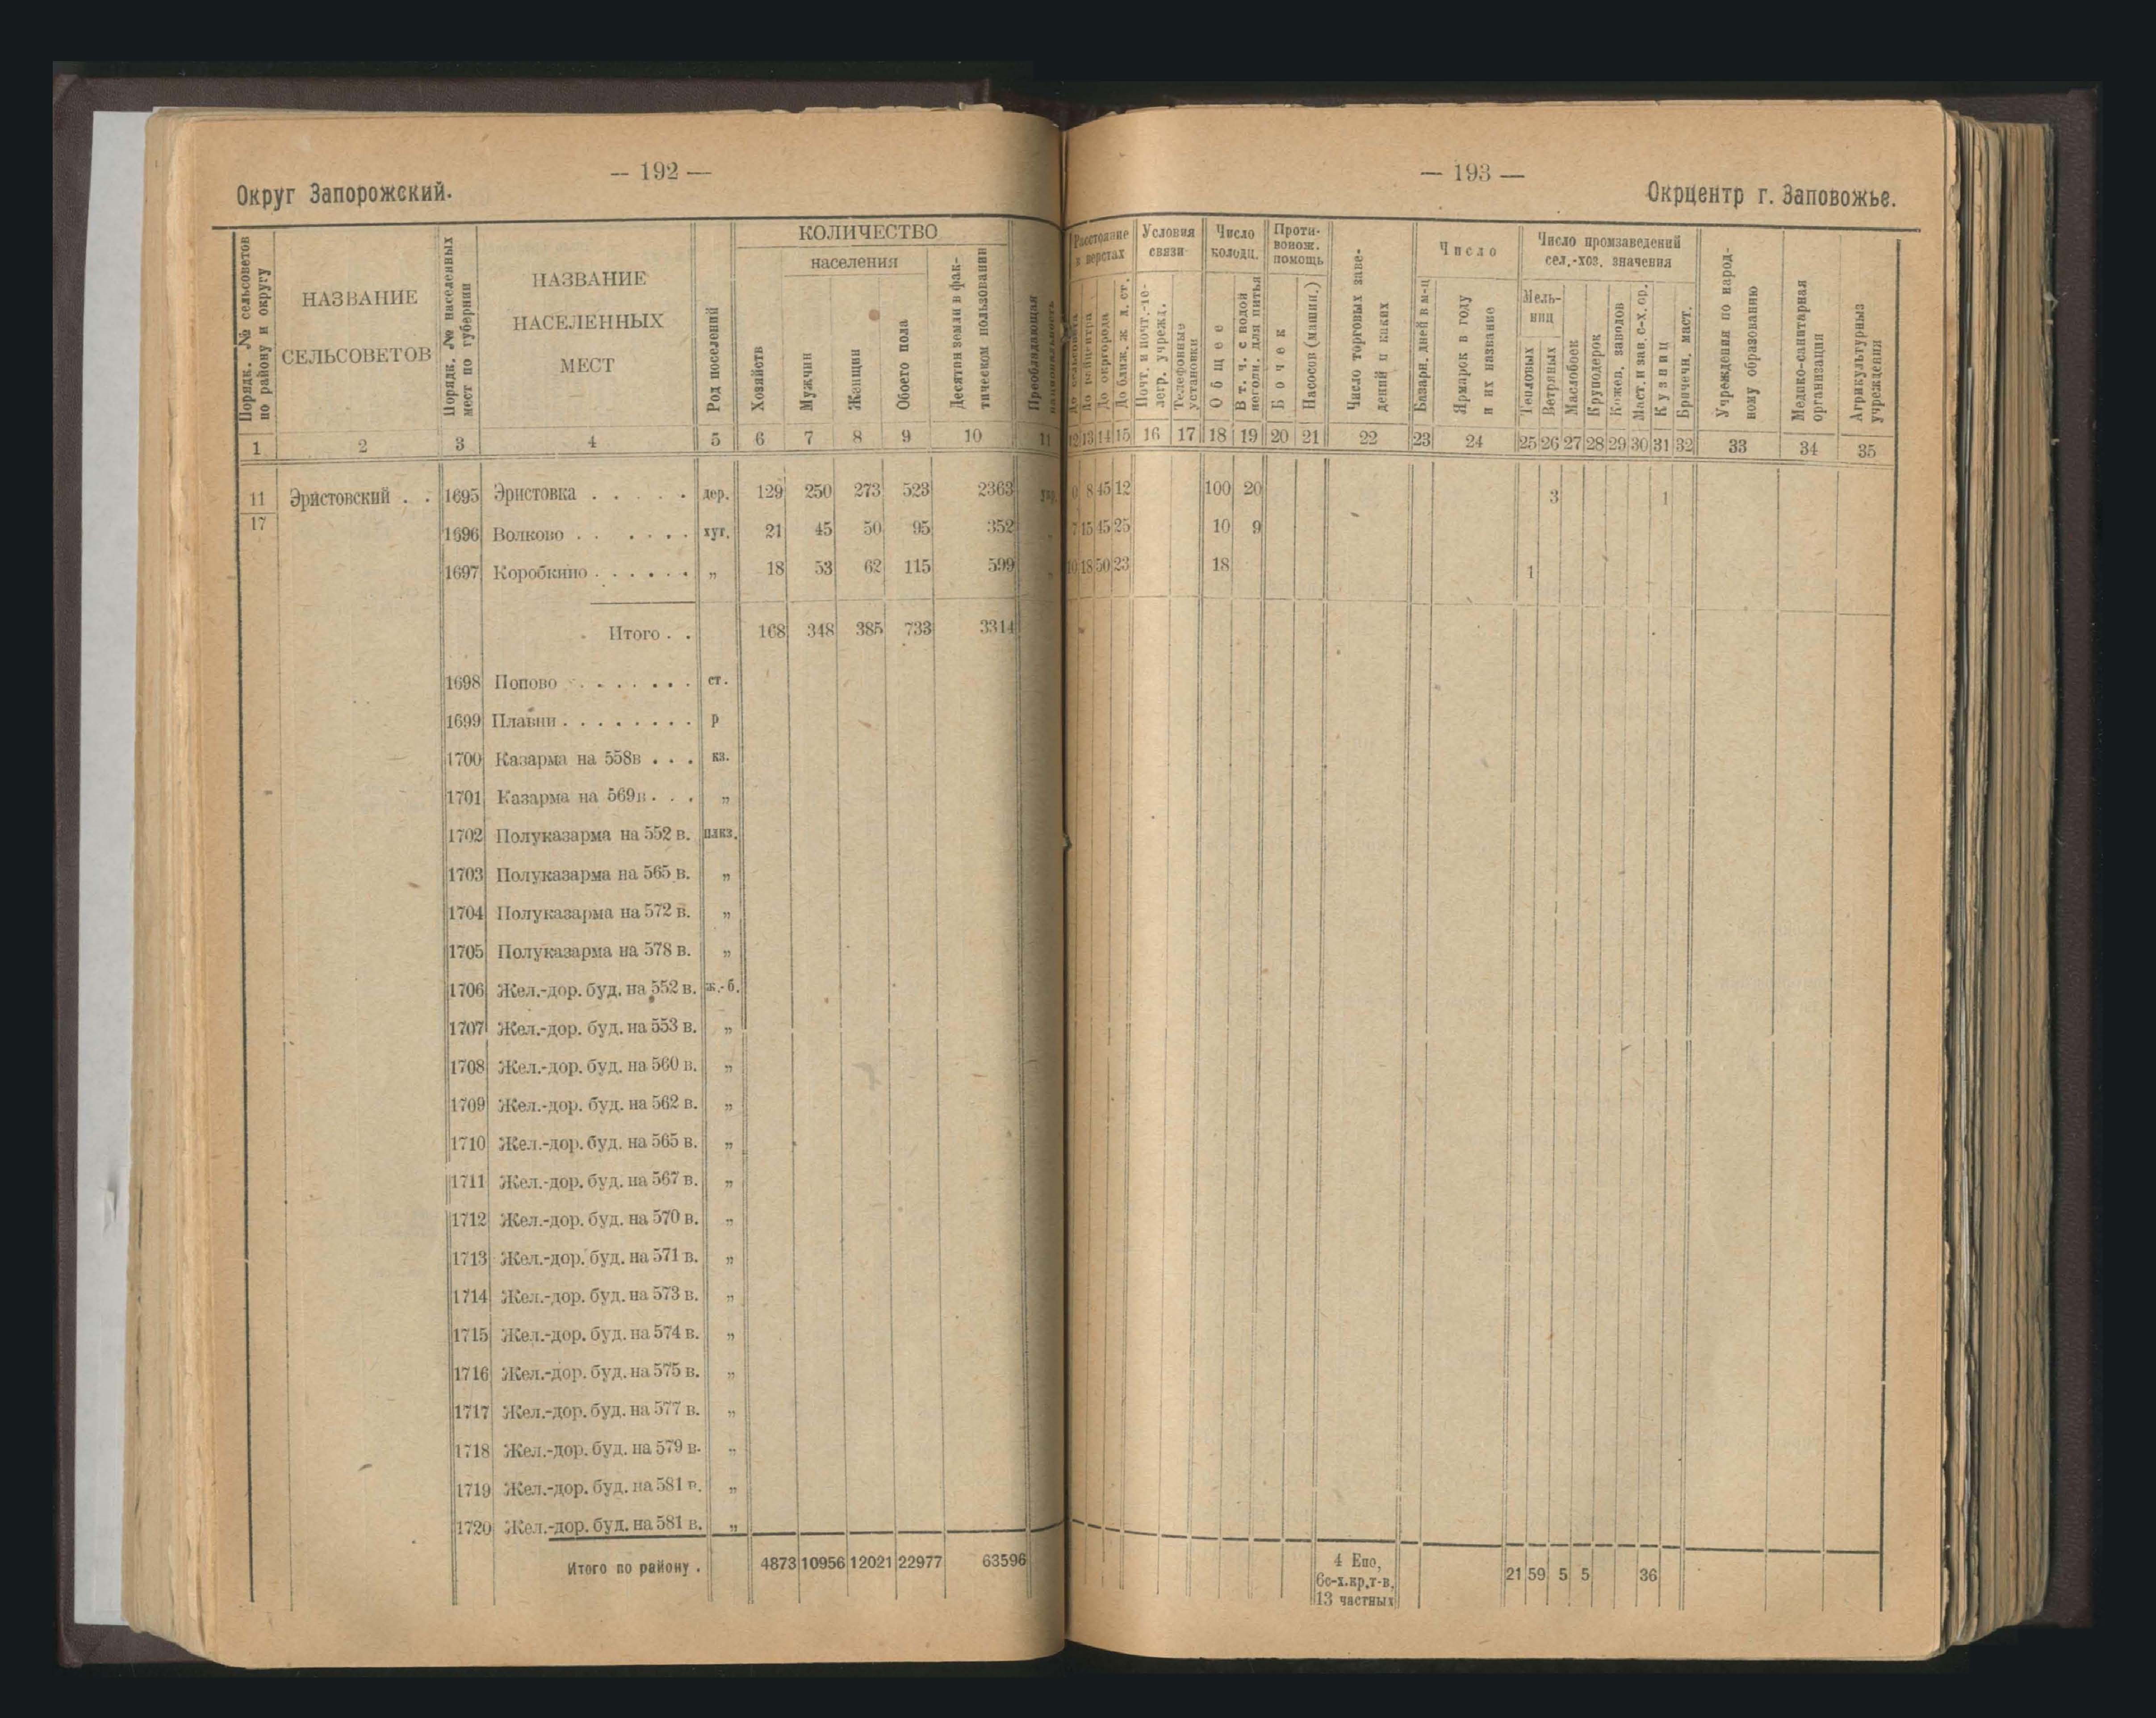 — 192 —
Округ Запорожский.
Порядк. №№ сельсоветов по району и округу
НАЗВАНИЕ СЕЛЬСОВЕТОВ
Порядк. №№ населенных мест по губернии
НАЗВАНИЕ НАСЕЛЕННЫХ МЕСТ
Род поселений
КОЛИЧЕСТВО
населения
Хозяйств
Мужчин
Женщин
Обоего пола
Десятин земли в фактическом пользовании
Преобладающая национальность
1 2 3 4 5 6 7 8 9 10 11
11 Эристовский . . 1695 Эристовка . . . . . дер. 129 250 273 523 2363 укр.
17
1696 Волково . . . . . . хут. 21 45 50 95 352 „
1697 Коробкино . . . . . . „ 18 53 62 115 599 „
Итого . . 168 348 385 733 3314
1698 Попово . . . . . . . ст.
1699 Плавни . . . . . . . . р
1700 Казарма на 558в . . . кз.
1701 Казарма на 569в . . . „
1702 Полуказарма на 552 в. плкз.
1703 Полуказарма на 565 в. „
1704 Полуказарма на 572 в. „
1705 Полуказарма на 578 в. „
1706 Жел.-дор. буд. на 552 в. ж.-б.
1707 Жел.-дор. буд. на 553 в. „
1708 Жел.-дор. буд. на 560 в. „
1709 Жел.-дор. буд. на 562 в. „
1710 Жел.-дор. буд. на 565 в. „
1711 Жел.-дор. буд. на 567 в. „
1712 Жел.-дор. буд. на 570 в. „
1713 Жел.-дор. буд. на 571 в. „
1714 Жел.-дор. буд. на 573 в. „
1715 Жел.-дор. буд. на 574 в. „
1716 Жел.-дор. буд. на 575 в. „
1717 Жел.-дор. буд. на 577 в. „
1718 Жел.-дор. буд. на 579 в. „
1719 Жел.-дор. буд. на 581 в. „
1720 Жел.-дор. буд. на 581 в. „
Итого по району . 4873 10956 12021 22977 63596
— 193 —
Окрцентр г. Заповожье.
Расстояние в верстах
До сельсовета
До райцентра
До окргорода
До ближ. ж. д. ст.
Условия связи
Почт. и почт.-телегр. учрежд.
Телефонные установки
Число колодц.
Общее
В т. ч. с водой негодн. для питья
Противопож. помощь
Бочек
Насосов (машин.)
Число торговых заведений и каких
Число
Базарн. дней в м-ц
Ярмарок в году и их название
Число промзаведений сел.-хоз. значения
Мельниц
Тепловых
Ветряных
Маслобоек
Круподерок
Кожев. заводов
Маст. и зав. с-х. ор.
Кузниц
Бричечн. маст.
Учреждения по народному образованию
Медико-санитарная организация
Агрикультурныз учреждения
12 13 14 15 16 17 18 19 20 21 22 23 24 25 26 27 28 29 30 31 32 33 34 35
0 8 45 12 100 20 3 1
7 15 45 25 10 9
10 18 50 23 18 1
4 Епо,
6с-х.кр.т-в,
13 частных
21 59 5 5 36